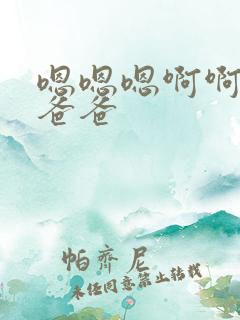 嗯嗯嗯啊啊
爸爸
帕齊尼
未经同意禁止转载